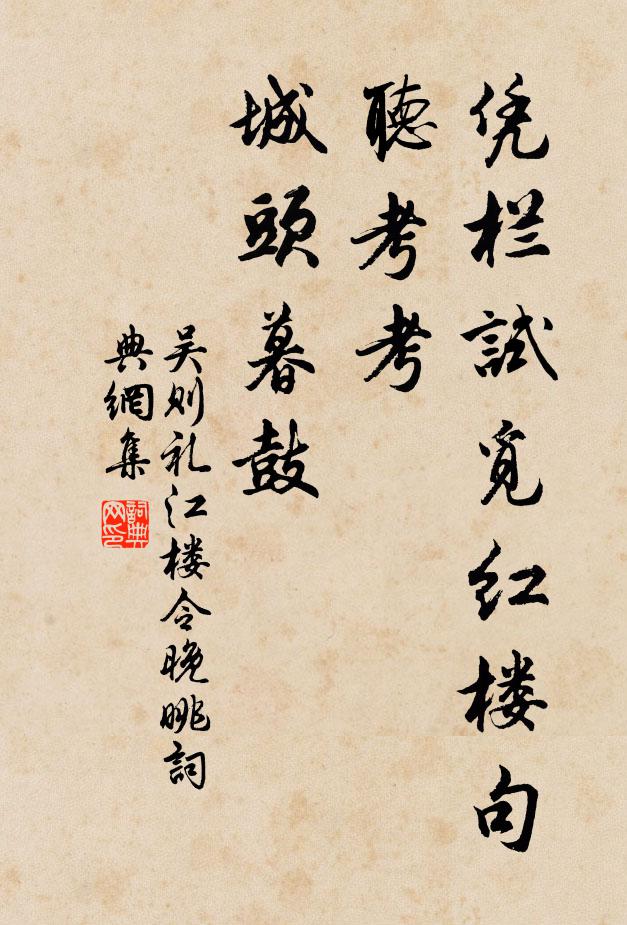 凭栏試覓红楼句
聽考考
城頭暮鼓
吴则礼江楼令晚眺詞
典網集
詞典网印